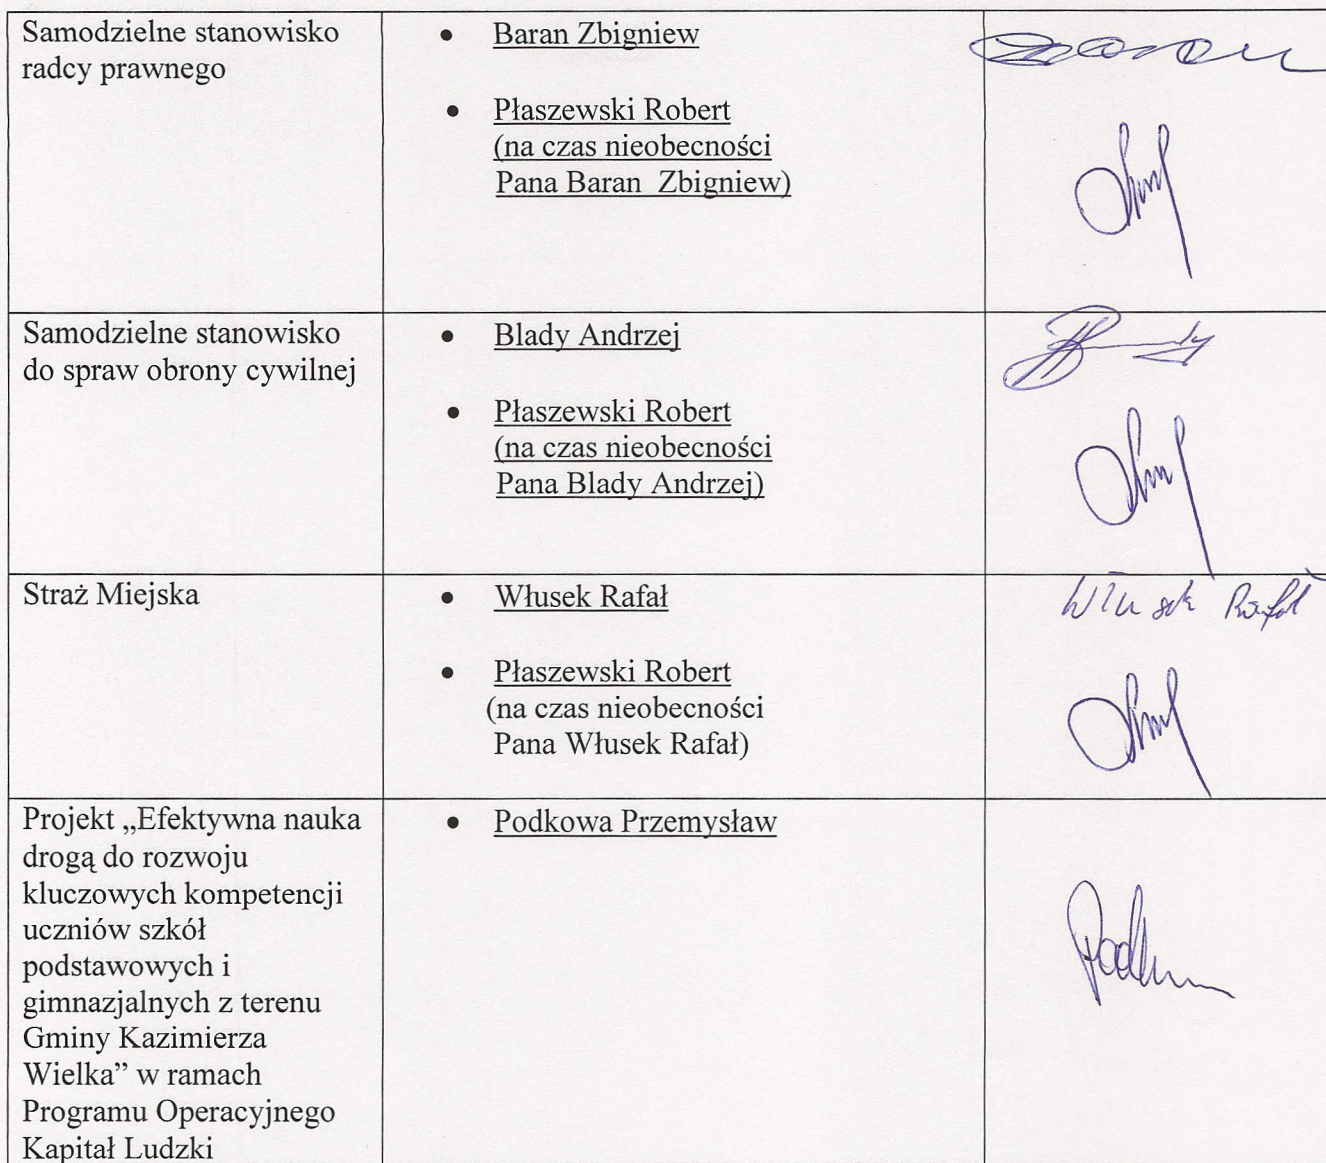 Samodzielne stanowisko
radcy prawnego
• Baran Zbigniew
• Płaszewski Robert
(na czas nieobecności
Pana Baran Zbigniew)
Samodzielne stanowisko
do spraw obrony cywilnej
• Blady Andrzej
• Płaszewski Robert
(na czas nieobecności
Pana Blady Andrzej)
Straż Miejska
• Włusek Rafał
• Płaszewski Robert
(na czas nieobecności
Pana Włusek Rafał)
Włusek Rafał
Projekt „Efektywna nauka
drogą do rozwoju
kluczowych kompetencji
uczniów szkół
podstawowych i
gimnazjalnych z terenu
Gminy Kazimierza
Wielka” w ramach
Programu Operacyjnego
Kapitał Ludzki
• Podkowa Przemysław